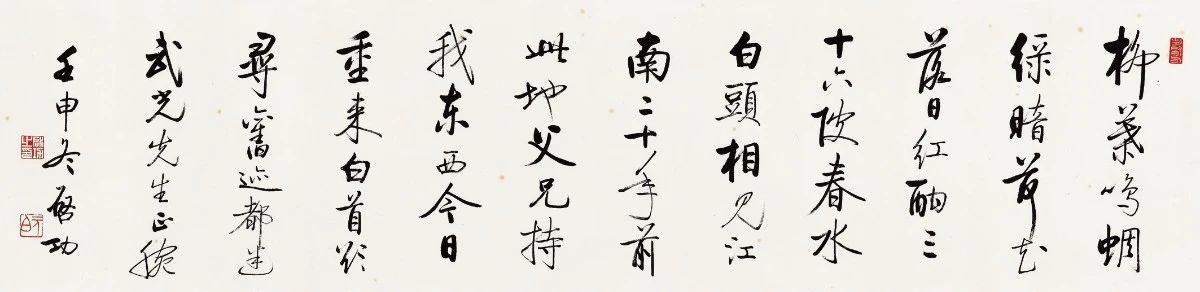 柳葉鳴蜩
綠暗荷花
落日紅酣三
十六陂春水
白頭相見江
南二十年前
此地父兄持
我东西今日
重来白首欲
尋舊迹都迷
武光先生正腕
壬申冬啓功